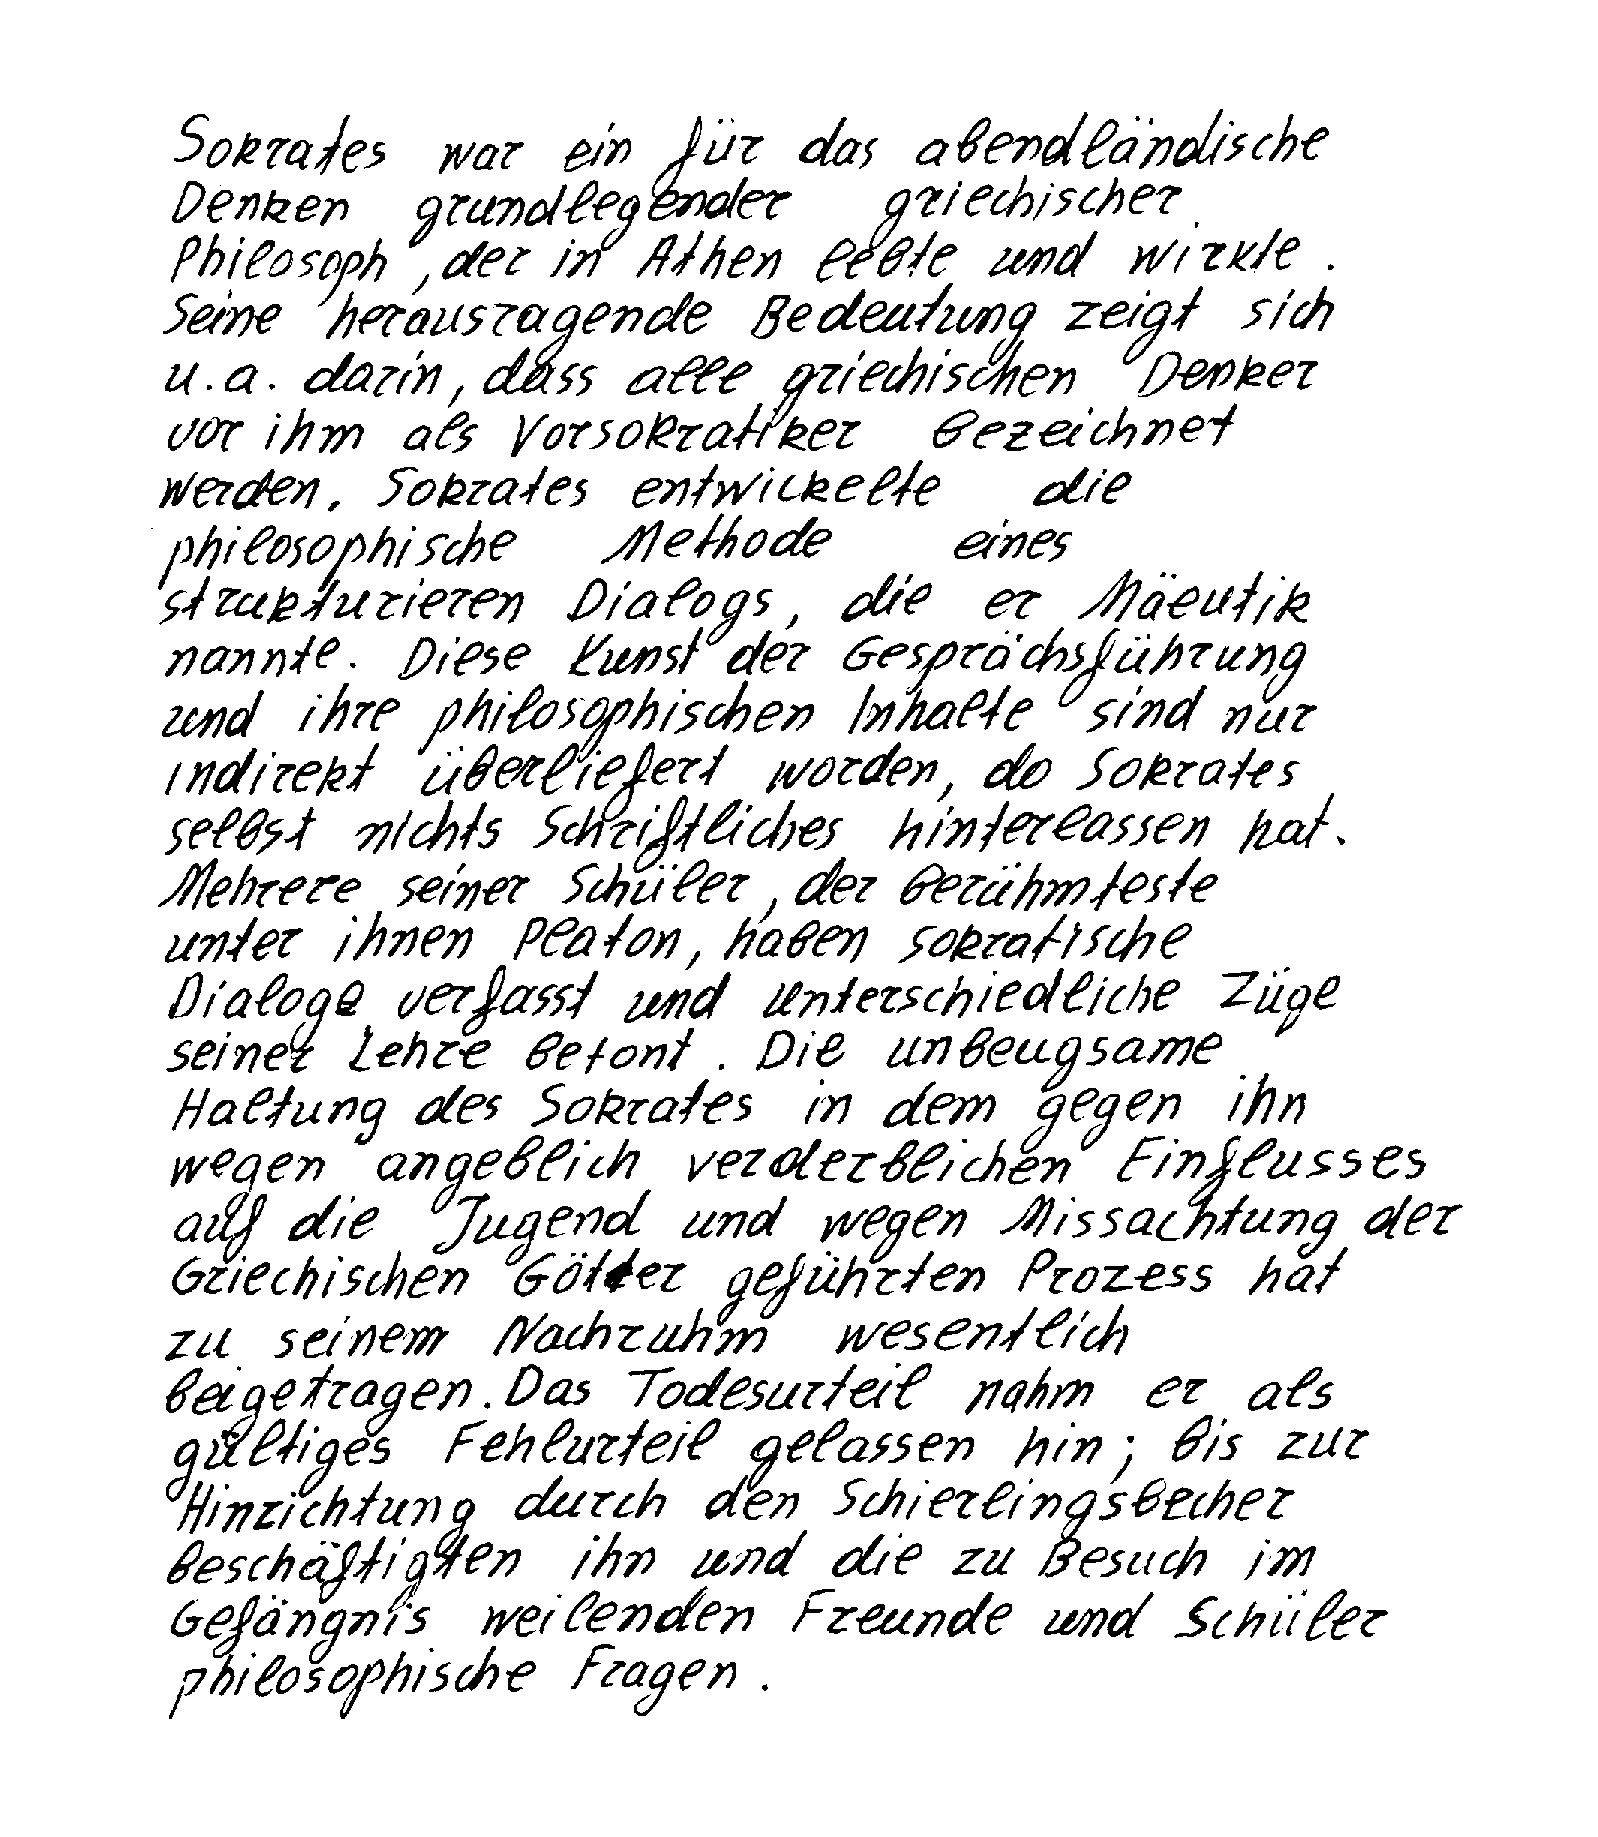 Sokrates war ein für das abendländische
Denken grundlegender griechischer
Philosoph, der in Athen lebte und wirkte.
Seine herausragende Bedeutung zeigt sich
u.a. darin, dass alle griechischen Denker
vor ihm als Vorsokratiker bezeichnet
werden. Sokrates entwickelte die
philosophische Methode eines
strukturieren Dialogs, die er Mäeutik
nannte. Diese Kunst der Gesprächsführung
und ihre philosophischen Inhalte sind nur
indirekt überliefert worden, do Sokrates
selbst nichts Schriftliches hinterlassen hat.
Mehrere seiner Schüler, der berühmteste
unter ihnen Platon, haben sokratische
Dialoge verfasst und unterschiedliche Züge
seiner Lehre betont. Die unbeugsame
Haltung des Sokrates in dem gegen ihn
wegen angeblich verderblichen Einflusses
auf die Jugend und wegen Missachtung der
Griechischen Götter geführten Prozess hat
zu seinem Nachruhm wesentlich
beigetragen. Das Todesurteil nahm er als
gültiges Fehlurteil gelassen hin; bis zur
Hinrichtung durch den Schierlingsbecher
beschäftigten ihn und die zu Besuch im
Gefängnis weilenden Freunde und Schüler
philosophische Fragen.